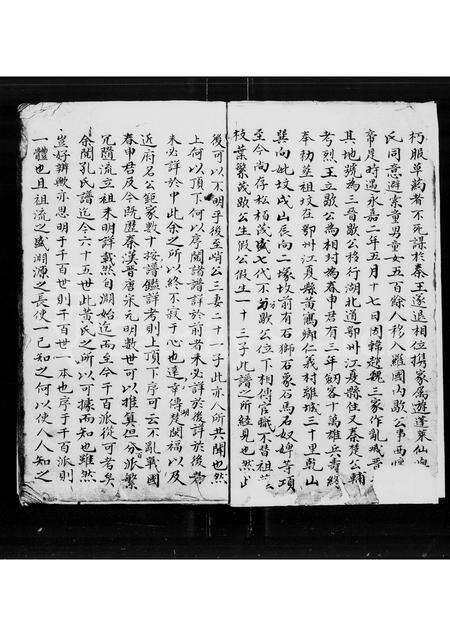 朽服草药者不死謀於秦王遂退相位携家属遊蓬萊仙向
氏同意避索童男童女五百餘人移入雅國内歇公事西
帝是時遇永嘉二年五月十七日因韓趙魏三家作亂城晋
其地號為三晋歇公移行湖北道鄂州江夏縣住又蔡楚公輔
考烈王立歇公為相封為春申君有三年
奉初塟祖坟在鄂州江夏縣黄鶴鄉仁義村離城三十里乾山
巽向此坟戌山辰向二塚坟前有石獅石象石馬石奴婢等項
至今尚存松柏茂盛七代不方歇公位下相傳官職不替祖
枝葉繁茂歇公生假公假公生一十三子此譜之所經見也然
後可以不明乎後至峭公三妻二十一子此亦人所共聞也然
上何以頂下何以序閱諸譜詳於前者未必詳於後詳於後者
未必詳於中此余之所以終不家于心也逹幸傳楚閩福以及
近府名公範家數十按譜鑑詳考則上頂下序可云不亂戰國
春申君及今既歷秦漢晋唐宋元明數世可以推算但分派繁
冗隨流立祖未明詳載然自湖始迄而至今千百派從可考矣
余閱孔氏譜迄今六十五世此黄氏之所以可據而知也雖然
豈好辨歟亦思明于千百世則千百世一本也序于千百派則
一體也且祖流之盛淵源之長使一己知之何以使人人知之